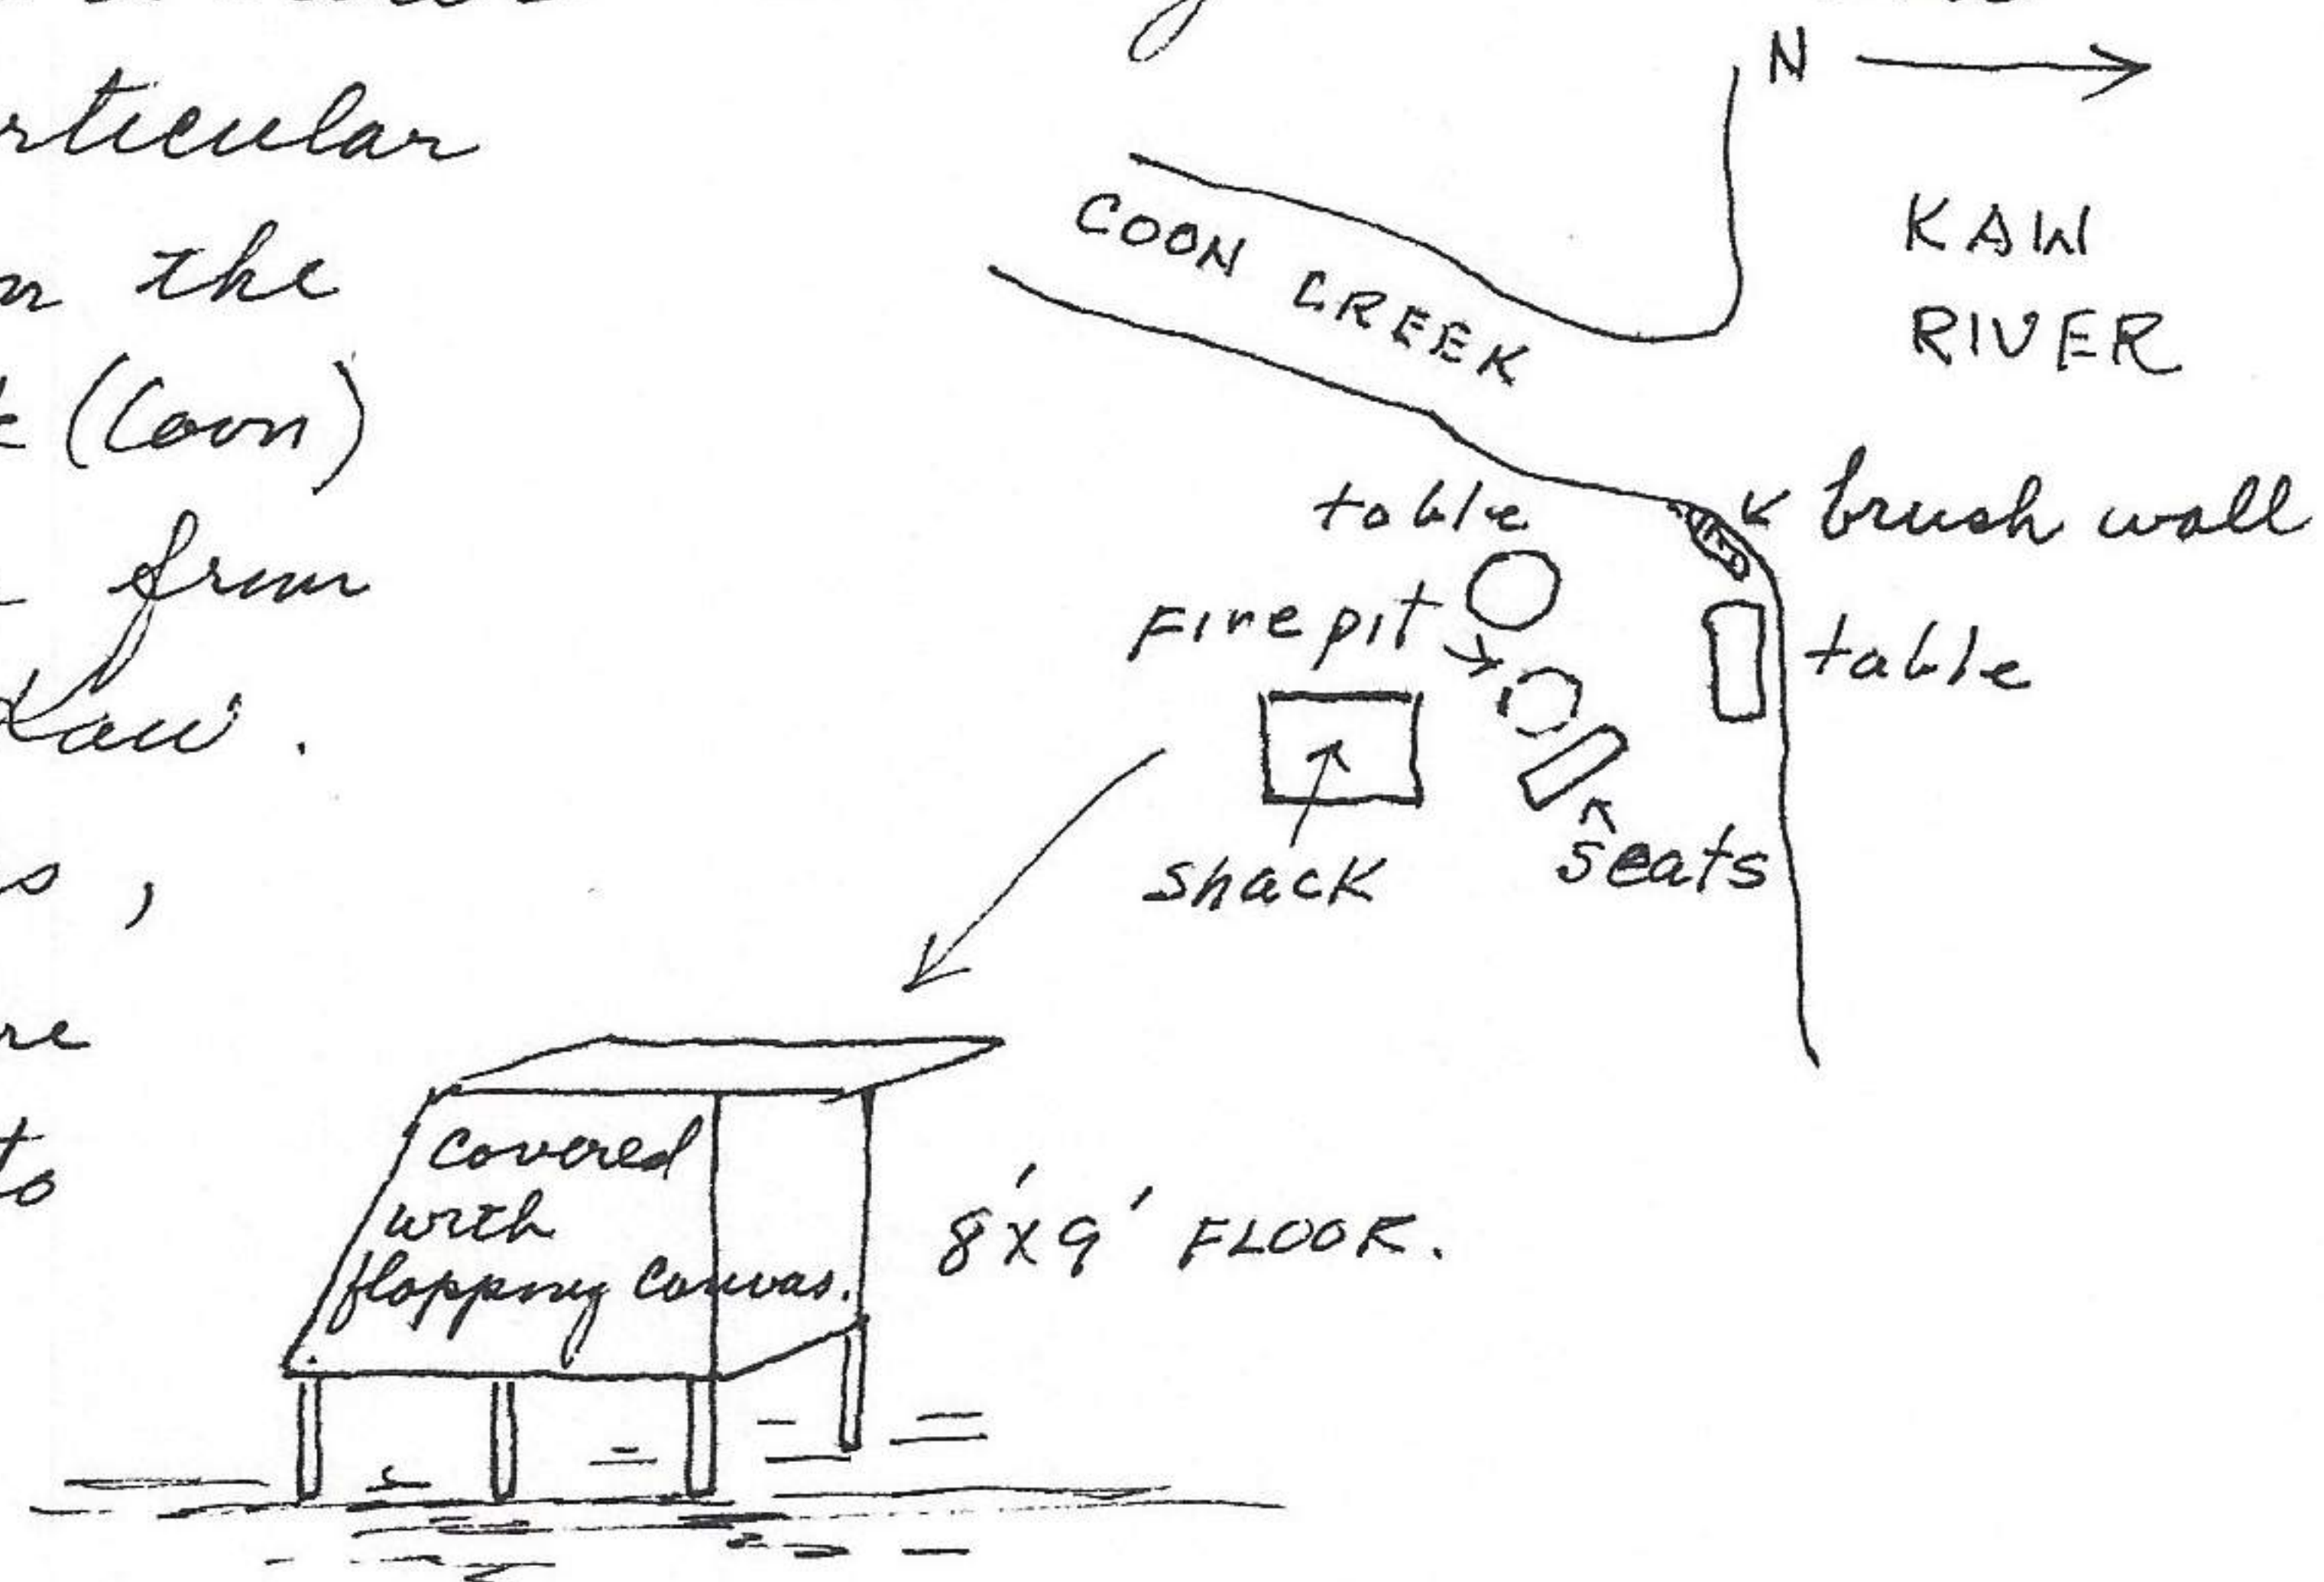 N
rticular
on the
(Coon)
from
Kaw.
re
to
COON CREEK
KAW
RIVER
brush wall
table
Fire pit
table
shack
seats
covered
with
flopping canvas.
8'x9' FLOOR.